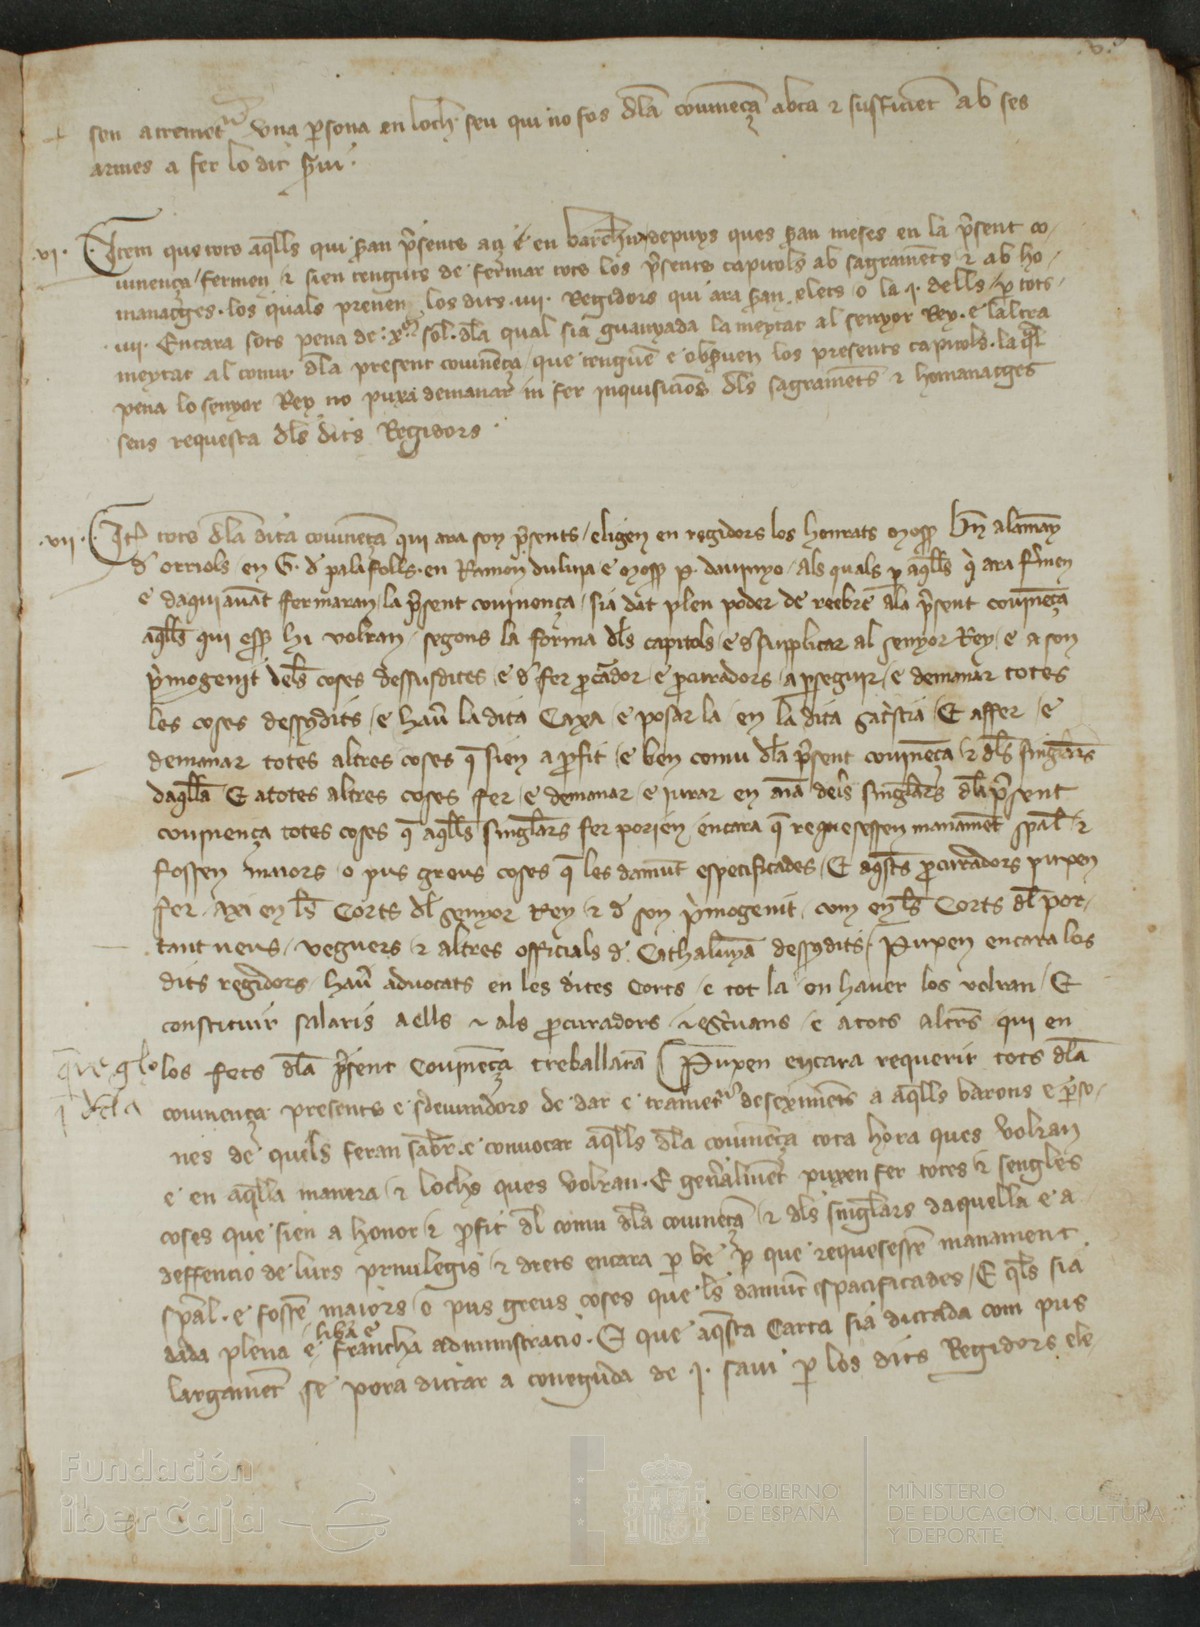 sen a trametr una psona en loch seu qui no fos dla covineça abta & sufficiet ab ses
armes a fer lo dit svii.
.vi. Item que tots aqlls qui sran psents açi e en barchna depuys ques sran meses en la psent co-
vinença / fermen & sien tenguts de fermar tots los psents capitols ab sagraments & ab ho-
manatges. los quals prenen los dits .iiii. Regidors qui ara sran elets o la .j. dells / p tots
.iiii. Encara sots pena de .x. sol. dla qual sia guanyada la meytat al senyor Rey. e laltra
meytat al comu dla present covineça / que tenguen e obsrven los presents capitols. la ql
pena lo senyor Rey no puxa demanar ni fer inquisicios dls sagramets & homanatges
sens requesta dls dits Regidors.
.vii. Ite tots dla dita covineça qui ara son psents / eligen en regidors los honrats mossen alamany
d orriols en G. d palafolls. en Ramon e mossen P. / als quals p aqlls q ara fmen
e daqui avat fermaran / la psent covinença / sia dat plen poder de reebre ala psent covineça
aqlls qui esser hi volran / segons la forma dls capitols / e d supplicar al senyor Rey / e a son
pmogenit dels coses dessusdites / e d fer pcador / e pcuradors / a pseguir / e demanar totes
les coses dessusdits / e haver la dita Caxa / e posar la en la dita / E affer / e
demanar totes altres coses q sien a pfit / e ben comu dla psent covineça / & dls singlars
daqlla E a totes altres coses fer / e demanar / e jurar en aia deis singlars dla psent
covinença totes coses q aqlls singlars fer porien / encara q requesessen manamet spal &
fossen maiors / o pus greus coses q les damut especificades / E aqsts pcuradors puxen
fer / axi en ls Corts dl senyor Rey / & d son pmogenit / com en ls Corts dl por-
tant veus / veguers & altres officials d Cathaluya dessusdits / Puxen encara los
dits regidors / haver advocats en les dites Corts / e tot la on haver los volran / E
constituir salaris a ells & als pcuradors / & escvans / e a tots altres qui en
los fets dla psent Covineça treballaran / Puxen encara requerir tots dla
covinença presents e sdevenidors de dar e trametr deseximets a aqlls barons e pso-
nes de quels feran sabr. e convocar aqlls dla covineça tota hora ques volran
e en aqlla manera & lochs ques volran. E genalmet puxen fer totes & sengles
coses que sien a honor & pfit dl comu dla covineça / & dls singlars daquella e a
deffencio de lurs privilegis & drets encara p be p que requesessen manament
spal. e fossen maiors o pus greus coses que ls damut espacificades / E qls sia
dada plena e libra e francha administracio. E que aqsta Carta sia dictada com pus
largamet se pora dictar a coneguda de .j. savi p los dits Regidors ele-
Fundación
iberCaja
GOBIERNO
DE ESPAÑA
MINISTERIO
DE EDUCACIÓN, CULTURA
Y DEPORTE